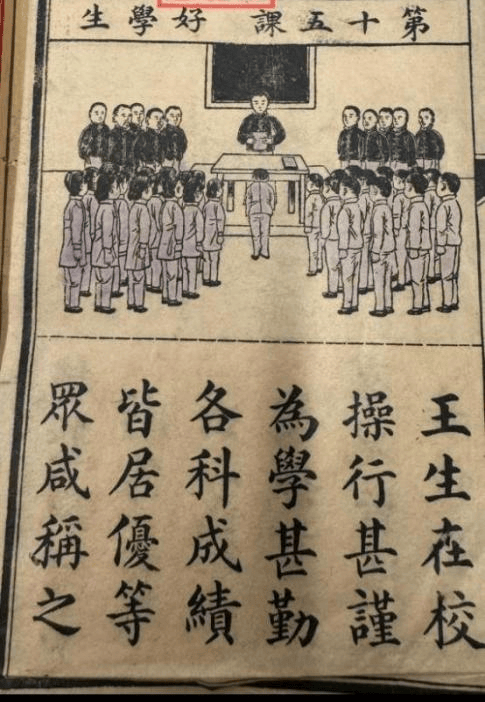 第十五課 好學生
王生在校
操行甚謹
為學甚勤
各科成績
皆居優等
眾咸稱之